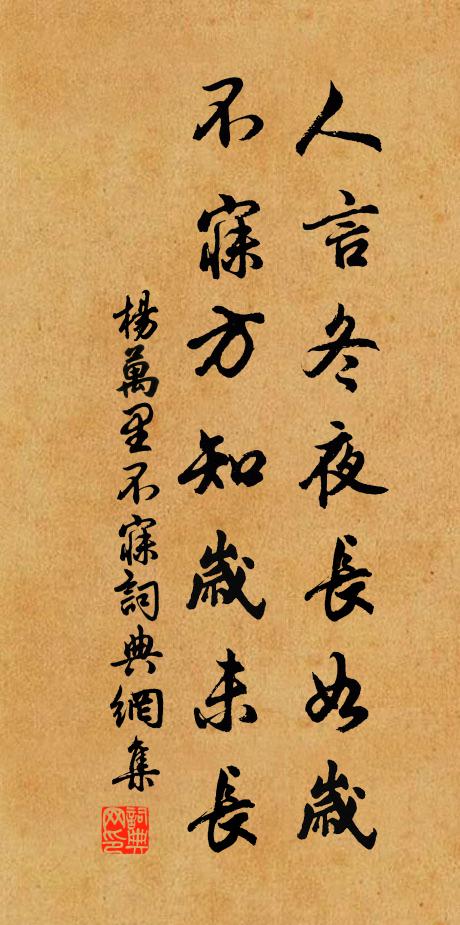 人言冬夜長如歲
不寐方知歲未長
楊萬里不寐詞典網集
詞典网印